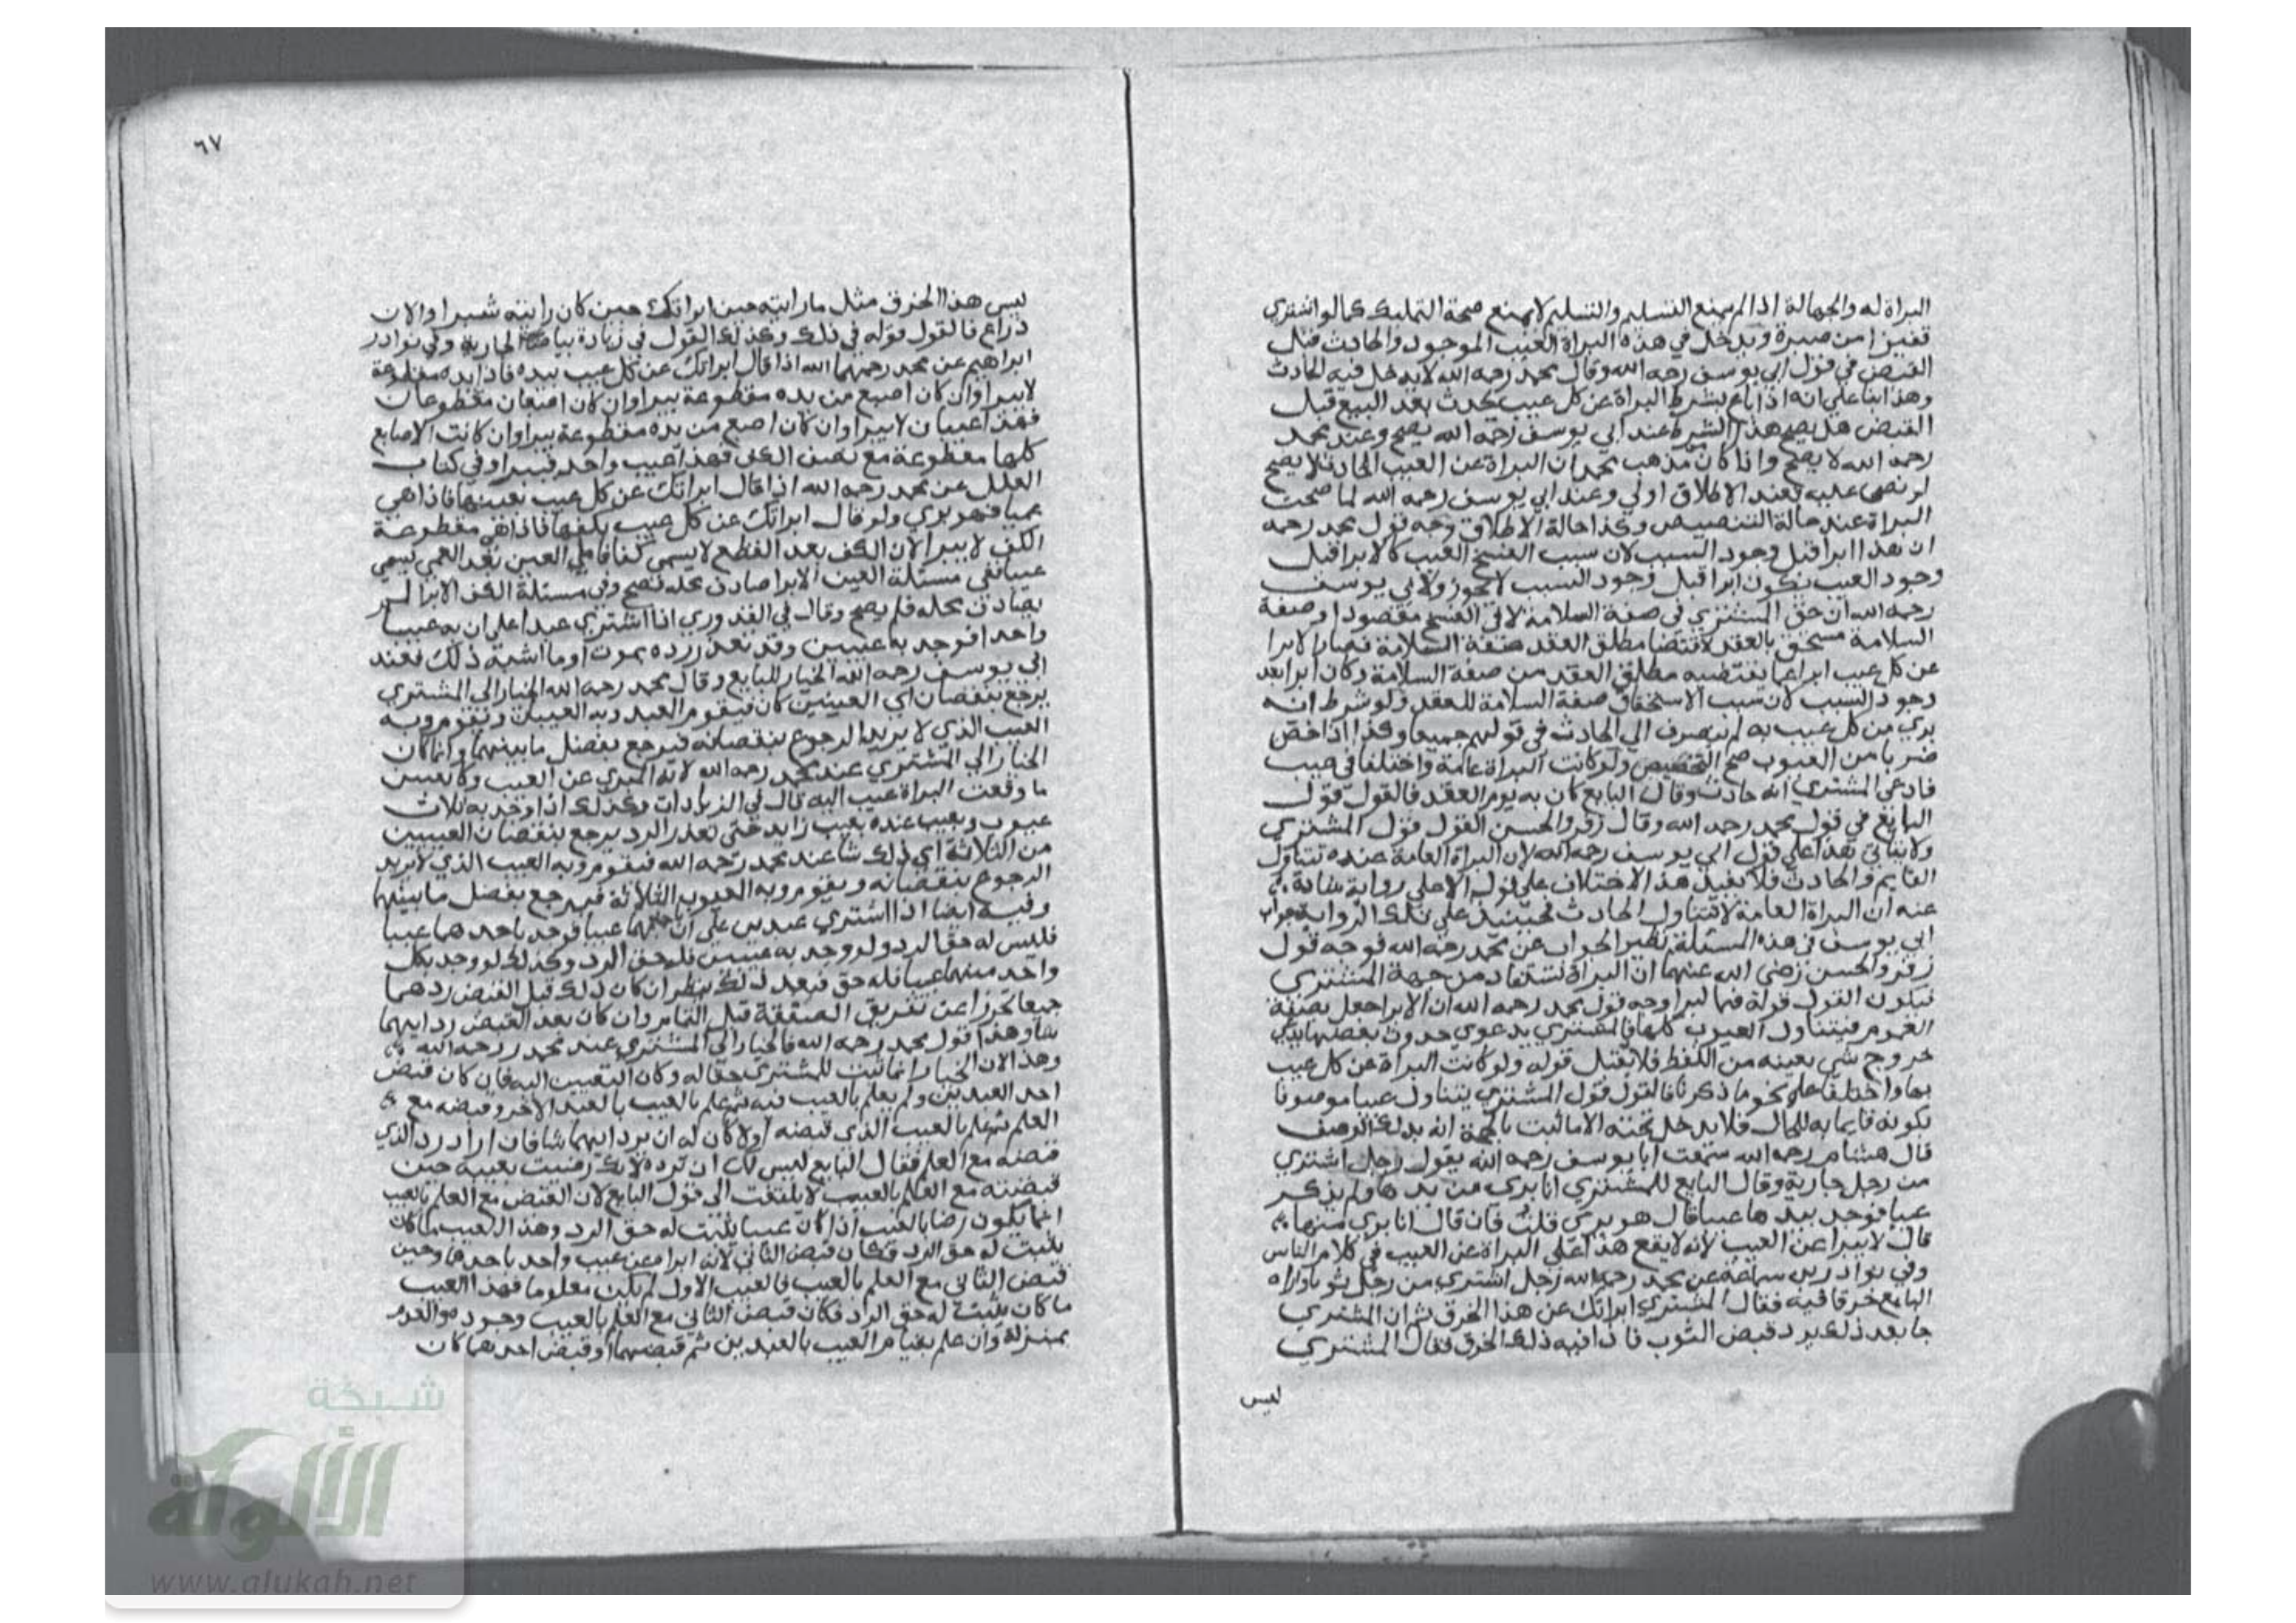 البراة له والجهالة اذا لم يمنع التسليم والتسليم لا يمنع صحة التمليك كما لو اشتري
قفيزا من صبرة ويدخل في هذه البراة العيب الموجود والحادث قبل
القبض في قول ابي يوسف رحمه الله وقال محمد رحمه الله لا يدخل فيه الحادث
وهذا بنا علي انه اذا باع بشرط البراة عن كل عيب يحدث بعد البيع قبل
القبض هل يصح هذا الشرط عند ابي يوسف رحمه الله يصح وعند محمد
رحمه الله لا يصح واذا كان مذهب محمد ان البراة عن العيب الحادث لا يصح
لو نص عليه فعند الاطلاق اولي وعند ابي يوسف رحمه الله لما صحت
البراة عند حالة التنصيص وكذا حالة الاطلاق وجه قول محمد رحمه
ان هذا ابرا قبل وجود السبب لان سبب الفسخ العيب كالابرا قبل
وجود العيب يكون ابرا قبل وجود السبب لا يجوز ولابي يوسف
رحمه الله ان حق المشتري في صفة السلامة لا في الفسخ مقصودا وصفة
السلامة مستحق بالعقد لاقتضا مطلق العقد صفة السلامة فصار الابرا
عن كل عيب ابرا عما يقتضيه مطلق العقد من صفة السلامة وكان ابرا بعد
وجود السبب لان سبب الاستحقاق صفة السلامة للعقد ولو شرط انه
بري من كل عيب به لم ينصرف الي الحادث في قولهم جميعا وكذا اذا خص
ضربا من العيوب صح التخصيص ولو كانت البراة عامة واختلفا في عيب
فادعي المشتري انه حادث وقال البايع كان به يوم العقد فالقول قول
البايع في قول محمد رحمه الله وقال زفر والحسن القول قول المشتري
ولا يتاتي هذا علي قول ابي يوسف رحمه الله لان البراة العامة عنده تتناول
القايم والحادث فلا يفيد هذا الاختلاف علي قوله الا علي رواية شاذة
عنه ان البراة العامة لا تتناول الحادث فحينئذ علي تلك الرواية جواب
ابي يوسف في هذه المسئلة نظير الجواب عن محمد رحمه الله فوجه قول
زفر والحسن رضي الله عنهما ان البراة تستفاد من جهة المشتري
فيكون القول قوله فيما ابرا وجه قول محمد رحمه الله ان الابرا حصل بصفة
العموم فيتناول العيوب كلها فالمشتري بدعوي حدوث بعضها يدعي
خروج شي بعينه من اللفظ فلا يقبل قوله ولو كانت البراة عن كل عيب
بها واختلفا علي نحو ما ذكرنا فالقول قول المشتري يتناول عيبا موصوفا
بكونه قايما به للحال فلا يدخل تحته الا ما اثبت بالحجة انه بذلك الوصف
قال هشام رحمه الله سمعت ابا يوسف رحمه الله يقول رجل اشتري
من رجل جارية وقال البايع للمشتري انا بري من يدها ولم يذكر
عيبا فوجد بيدها عيبا قال هو بري قلت فان قال انا بري منها
قال لا يبرا عن العيب لانه لا يقع هذا علي البراة عن العيب في كلام الناس
وفي نوادر بن سماعة عن محمد رحمه الله رجل اشتري من رجل ثوبا واراه
البايع خرقا فيه فقال المشتري ابراتك عن هذا الخرق ثم ان المشتري
جا بعد ذلك يريد قبض الثوب فاذا فيه ذلك الخرق فقال المشتري
ليس
٦٧
ليس هذا الخرق مثل ما رايته حين ابراتك حين كان رايته شبرا والان
ذراع فالقول قوله في ذلك وكذلك القول في زيادة بياض الجارية وفي نوادر
ابراهيم عن محمد رحمهما الله اذا قال ابراتك عن كل عيب بيده فاذا يده مقطوعة
لا يبرا وان كان اصبع من يده مقطوعة يبرا وان كان اصبعان مقطوعان
فهذا عيبان لا يبرا وان كان اصبع من يده مقطوعة يبرا وان كانت الاصابع
كلها مقطوعة مع نصف الكف فهذا عيب واحد فيبرا وفي كتاب
العلل عن محمد رحمه الله اذا قال ابراتك عن كل عيب بعينها فاذا هي
عميا فهو بري ولو قال ابراتك عن كل عيب بكفها فاذا هي مقطوعة
الكف لا يبرا لان الكف بعد القطع لا يسمي كفا فاما العين بعد العمي يسمي
عينا ففي مسئلة العين الابرا صادف محله فصح وفي مسئلة الكف الابرا لم
يصادف محله فلم يصح وقال في القدوري اذا اشتري عبدا علي ان به عيبا
واحدا فوجد به عيبين وقد تعذر رده بموت او ما اشبه ذلك فعند
ابي يوسف رحمه الله الخيار للبايع وقال محمد رحمه الله الخيار الي المشتري
يرجع بنقصان اي العيبين كان فيقوم العبد وبه العيبان ويقوم وبه
العيب الذي لا يريد الرجوع بنقصانه فيرجع بفضل ما بينهما وانما كان
الخيار الي المشتري عند محمد رحمه الله لانه المبري عن العيب وكان تعيين
ما وقعت البراة عيب اليه قال في الزيادات وكذلك اذا وجد به ثلاث
عيوب وتعيب عنده بعيب زايد حتي تعذر الرد يرجع بنقصان العيبين
من الثلاثة اي ذلك شا عند محمد رحمه الله فيقوم وبه العيب الذي لا يريد
الرجوع بنقصانه ويقوم وبه العيوب الثلاثة فيرجع بفضل ما بينهما
وفيه ايضا اذا اشتري عبدين علي ان باحدهما عيبا فوجد باحدهما عيبا
فليس له حق الرد ولو وجد به عيبين فله حق الرد وكذلك لو وجد بكل
واحد منهما عيبا فله حق فبعد ذلك ينظر ان كان ذلك قبل القبض ردهما
جميعا تحرزا عن تفريق الصفقة قبل التمام وان كان بعد القبض رد ايهما
شا وهذا قول محمد رحمه الله فالخيار الي المشتري عند محمد رحمه الله
وهذا لان الخيار انما اثبت للمشتري حقا له وكان التعيين اليه فان كان قبض
احد العبدين ولم يعلم بالعيب فيه ثم علم بالعيب بالعبد الاخر وقبضه مع
العلم ثم علم بالعيب الذي قبضه اولا كان له ان يرد ايهما شا فان اراد رد الذي
قبضه مع العلم فقال البايع ليس لك ان ترده لانك رضيت بعيبه حين
قبضته مع العلم بالعيب لا يلتفت الي قول البايع لان القبض مع العلم بالعيب
انما يكون رضا بالعيب اذا كان عيبا يثبت له حق الرد وهذا العيب ما كان
يثبت له حق الرد فكان قبض الثاني لانه ابرا من عيب واحد باحدهما وحين
قبض الثاني مع العلم بالعيب فالعيب الاول لم يكن معلوما فهذا العيب
ما كان يثبت له حق الرد فكان قبض الثاني مع العلم بالعيب وجوده والعدم
بمنزلة وان علم بقيام العيب بالعبدين ثم قبضهما او قبض احدهما كان
شبكة
الألوكة
www.alukah.net